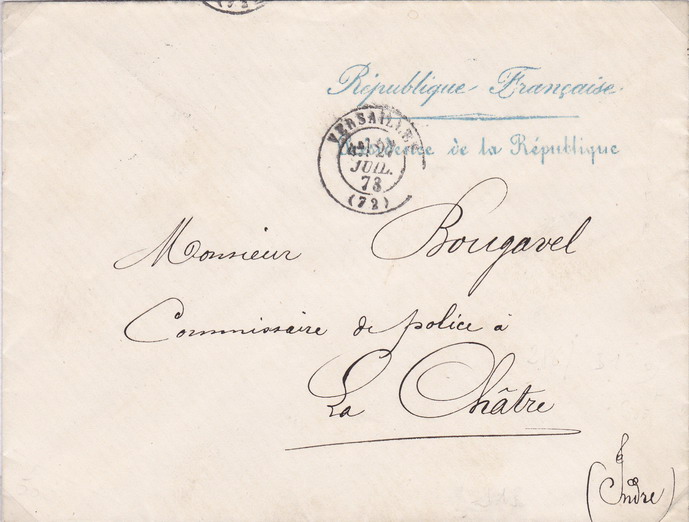 République Française
Présidence de la République
VERSAILLES
JUIL.
73
(72)
Monsieur Bougavel
Commissaire de police à
La Châtre
(Indre)